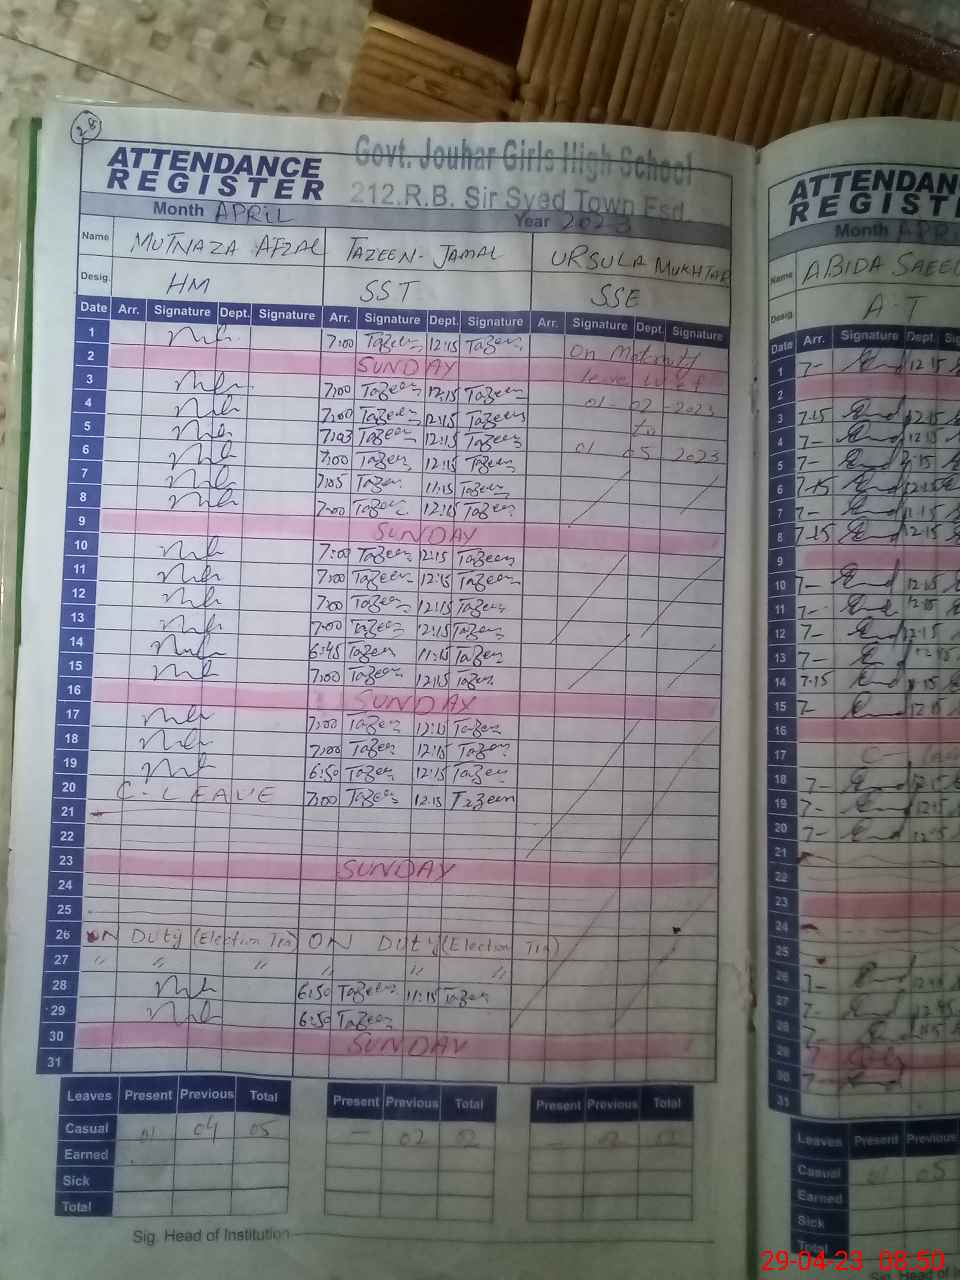 28
Govt. Jouhar Girls High School
ATTENDANCE REGISTER
212.R.B. Sir Syed Town Fsd
Month APRIL Year 2023
Name MUTNAZA AFZAL TAZEEN-JAMAL URSULA MUKHTAR
Desig. HM SST SSE
Date Arr. Signature Dept. Signature Arr. Signature Dept. Signature Arr. Signature Dept. Signature
1 7:00 Tazeen 12:15 Tazeen On Maternity
2 SUNDAY leave
3 7:00 Tazeen 12:15 Tazeen 01-02-2023
4 7:00 Tazeen 12:15 Tazeen to
5 7:03 Tazeen 12:15 Tazeen 01 05 2023
6 7:00 Tazeen 12:15 Tazeen
7 7:05 Tazeen 11:15 Tazeen
8 7:00 Tazeen 12:15 Tazeen
9 SUNDAY
10 7:00 Tazeen 12:15 Tazeen
11 7:00 Tazeen 12:15 Tazeen
12 7:00 Tazeen 12:15 Tazeen
13 7:00 Tazeen 12:15 Tazeen
14 6:45 Tazeen 11:15 Tazeen
15 7:00 Tazeen 12:15 Tazeen
16 SUNDAY
17 7:00 Tazeen 12:15 Tazeen
18 7:00 Tazeen 12:15 Tazeen
19 6:50 Tazeen 12:15 Tazeen
20 C-LEAVE 7:00 Tazeen 12:15 Tazeen
21
22
23 SUNDAY
24
25
26 ON Duty (Election Trn) ON Duty (Election Trn)
27 " " " " " "
28 6:50 Tazeen 11:15 Tazeen
29 6:50 Tazeen
30 SUNDAY
31
Leaves Present Previous Total Present Previous Total Present Previous Total
Casual 01 04 05 — 02 02 —
Earned
Sick
Total
Sig. Head of Institution
ATTENDAN
REGIST
Month
Name ABIDA SAEE
Desig. A.T
Date Arr. Signature Dept.
1 7- 12:15
2
3 7-15 12:15
4 7- 12:15
5 7-
6 7-15 12:15
7 7- 11:15
8 7-15 12:15
9
10 7- 12:15
11 7-
12 7- 12:15
13 7-
14 7-15
15 7- 12:15
16
17
18 7-
19 7- 12:15
20 7- 12:15
21
22
23
24
25
26 7-
27 7- 12:45
28 7-
29
30 7-
31
Leaves Present Previous
Casual 01 05
Earned
Sick
Total
29-04-23 08:50